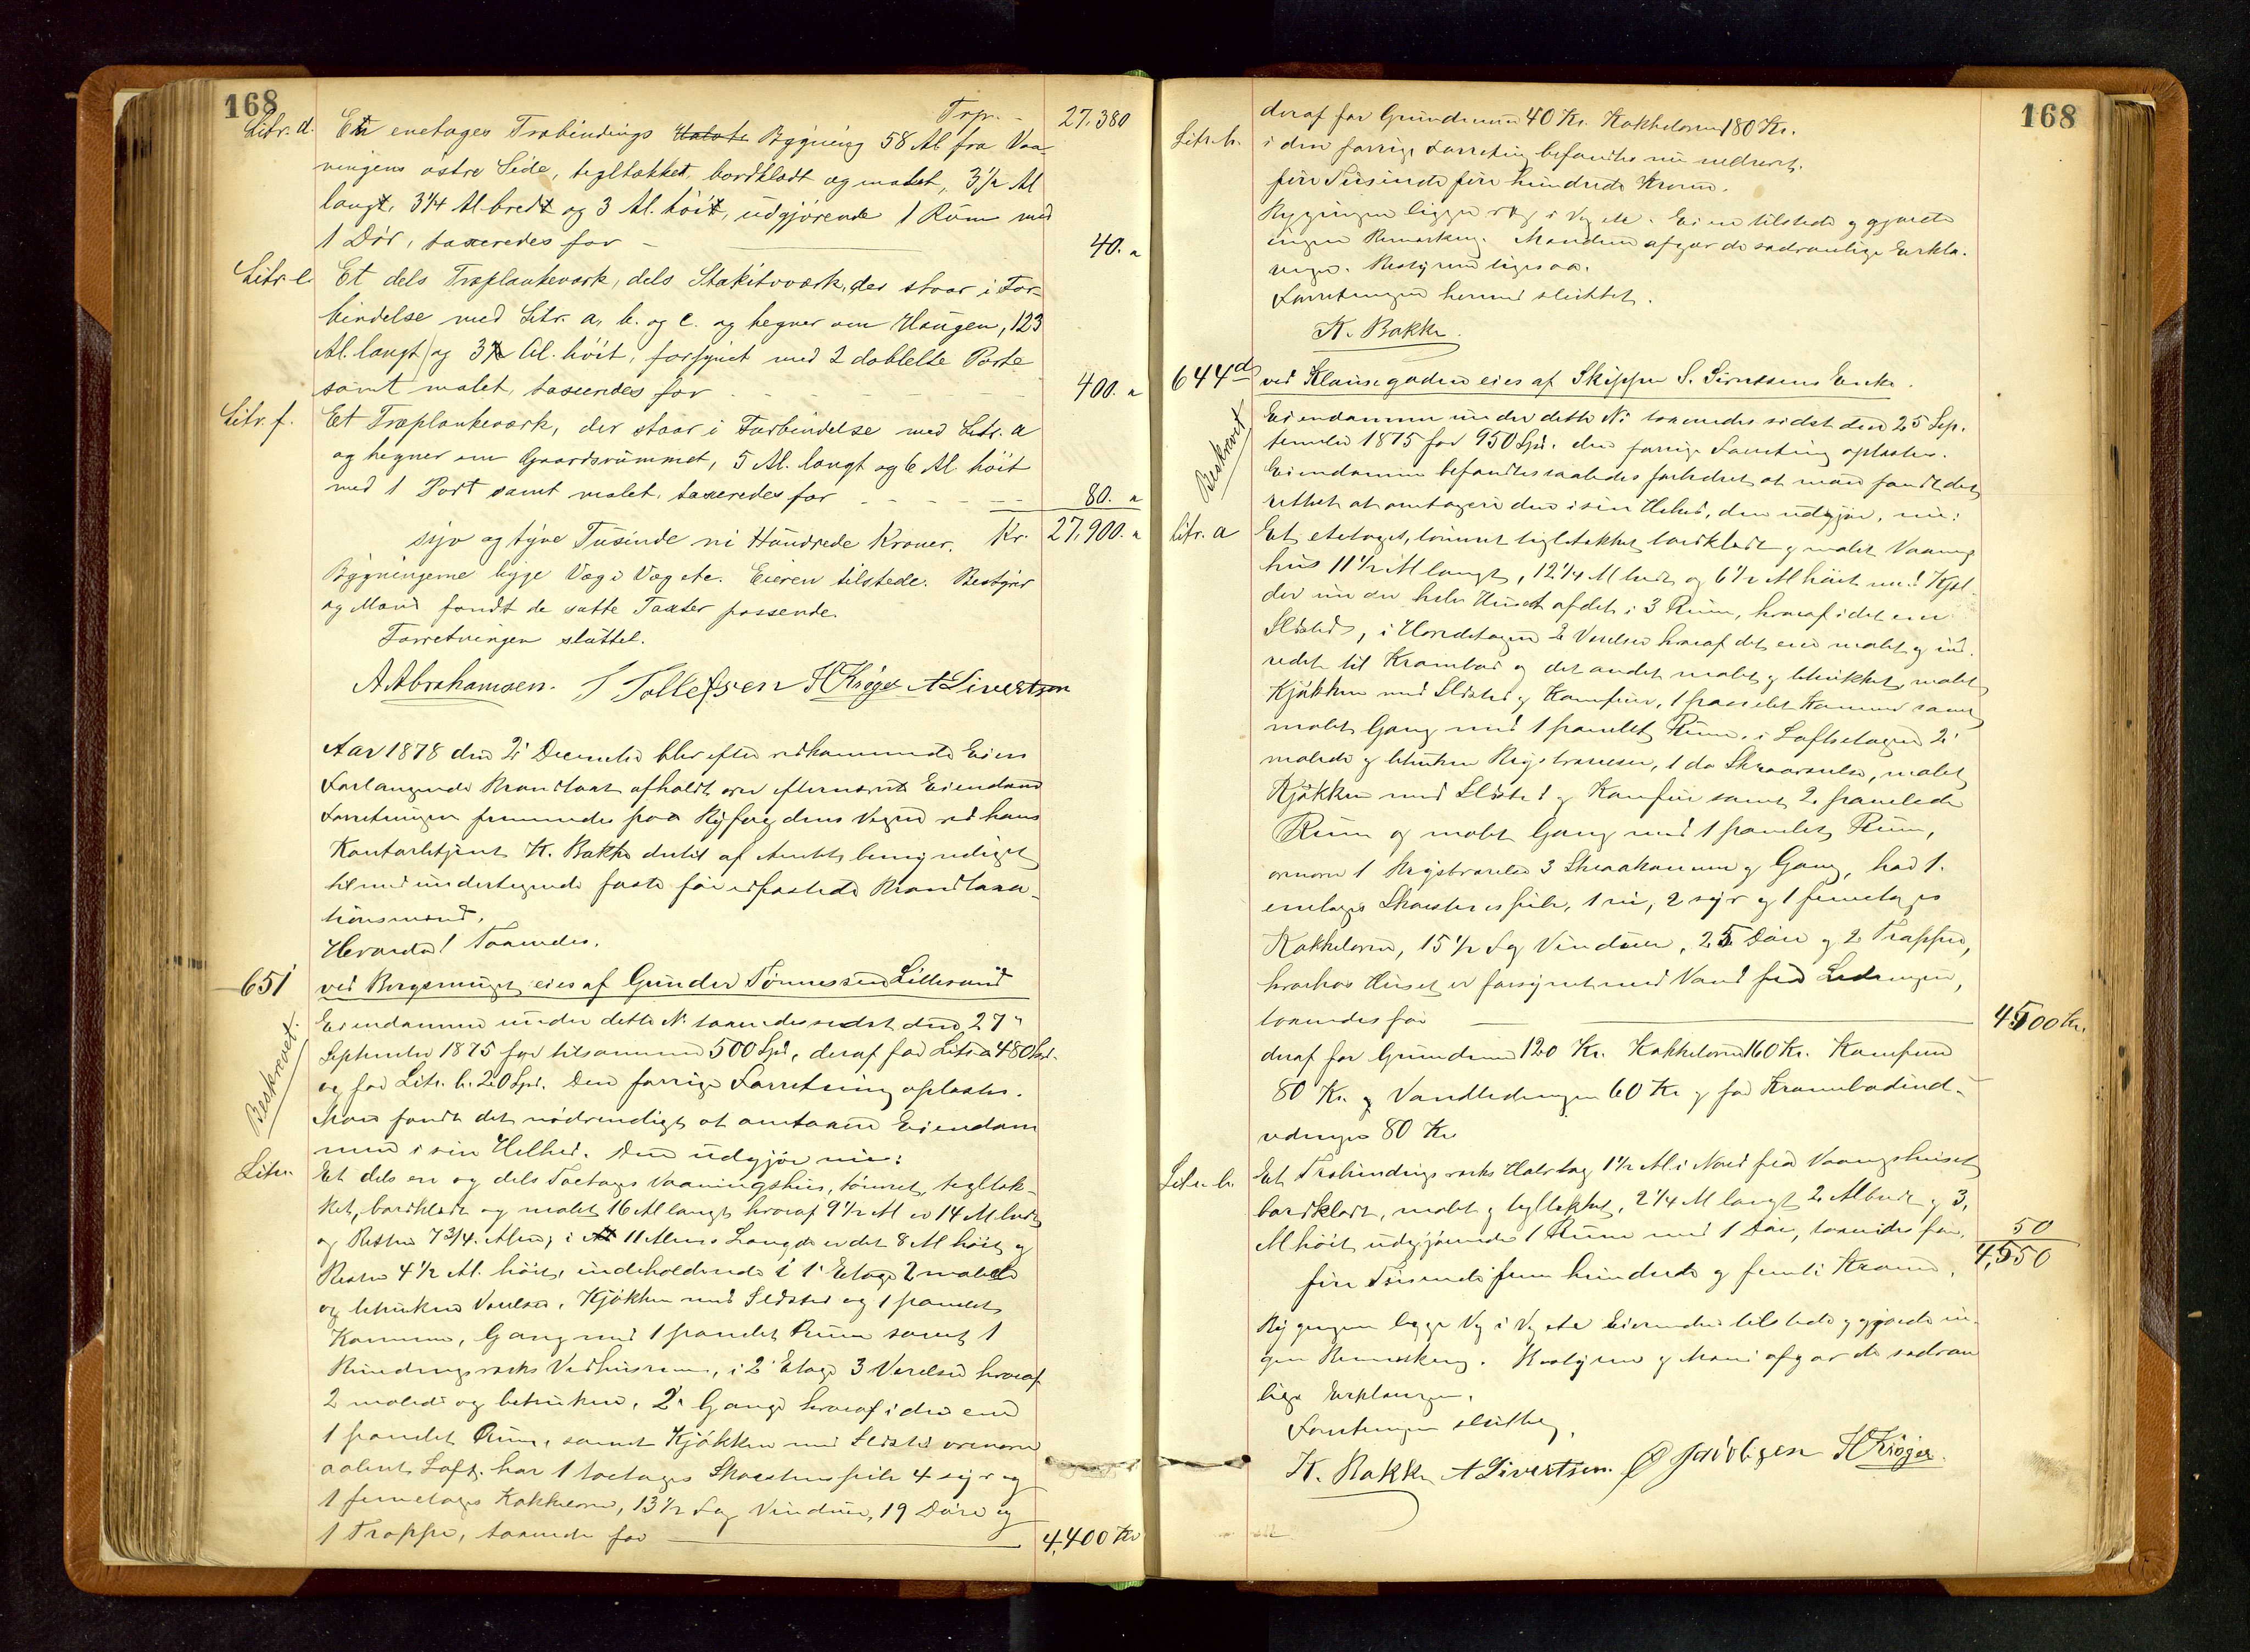 168
Trp. 27,380
Litr. d. En enetages Træbindings Halvta Bygning 58 Al. fra Vaa-
ningens østre Side, tegltækket, bordklædt og malet, 3½ Al.
langt, 3¼ Al. bredt og 3 Al. höit, udgjørende 1 Rum med
1 Dör, taxeredes for - 40. "
Litr. e. Et dels Træplankeværk, dels Stakitværk, der staar i For-
bindelse med Litr. a, b. og c. og hegner om Haugen, 123
Al. langt og 3 Al. höit, forsynet med 2 dobbelte Porte
samt malet, taxeredes for 400. "
Litr. f. Et Træplankeværk, der staar i Forbindelse med Litr. a
og hegner om Gaardsrummet, 5 Al. langt og 6 Al. höit
med 1 Port samt malet, taxeredes for 80. "
syv og tyve Tusinde ni Hundrede Kroner. Kr. 27,900. "
Bygningerne ligge Væg i Væg etc. Eieren tilstede. Bestyrer
og Mænd fandt de satte Taxter passende.
Forretningen sluttet.
A Abrahamsen. T Tollefsen H Krøger A Sivertsen
Aar 1878 den 2' December blev efter vedkommende Eiers
Forlangende Brandtaxt afholdt over efternævnte Eiendom
Forretningen fremmedes paa Byfogdens Vegne ved hans
Kontorbetjent K. Bakke dertil af Amtet bemyndiget
tilligemed undertegnede faste Brandtaxa-
tionsmænd.
Hvorda! Taxeredes.
651 ved Bergsmuget eies af Gunder Tönnessen Lillesand
Beskrevet.
Eiendommen under dette No. taxeredes sidst den 27"
September 1875 for tilsammen 500 Spd., deraf for Litr. a 480 Spd.
og for Litr. b. 20 Spd. Den forrige Forretning oplæstes.
Man fandt det nödvendigt at omtaxere Eiendom-
men i sin Helhed. Den udgjör nu:
Litr. Et dels en og dels Toetages Vaaningshus, tömret, tegltæk-
ket, bordklædt og malet 16 Al langt hvoraf 9½ Al er 14 Al bredt
og Resten 7¾ Alen; i 11 Alens Længde er det 8 Al höit og
Resten 4½ Al. höit, indeholdende i 1' Etage 2 malede
og betrukne Værelser, Kjökken med Ildsted og 1 panelet
Kammer, Gang med 1 panelet Rum samt 1
Bindingsværks Vedhusrum, i 2' Etage 3 Værelser hvoraf
2 malede og betrukne, 2' Gange hvoraf i den ene
1 panelet Rum, samt Kjökken med Ildsted ovenover
aabent Loft. har 1 toetages Skorstenspibe 4 syv og
1 femetages Kakkelovn, 13½ Fag Vinduer, 19 Döre og
1 Trappe, taxeredes for 4,400 Kr
168
deraf for Grundmuren 40 Kr. Kakkelovnene 180 Kr.
Litr. b. i den forrige Forretning befandtes nu nedrevet.
fire Tusinde fire hundrede Kroner.
Bygningen ligger Væg i Væg etc. Eieren tilstede og gjorde
ingen Bemærkning. Mændene afgav de sædvanlige Erklæ-
ringer. Bestyreren ligesaa.
Forretningen hermed sluttet.
K. Bakke.
644d ved Klausegaden eies af Skipper S. Sirnessens Enke.
Beskrevet
Eiendommen under dette No. taxeredes sidst den 25 Sep-
tember 1875 for 950 Spd. den forrige Forretning oplæstes.
Eiendommen befandtes saaledes forbedret at man fandt det
rettest at omtaxere den i sin Helhed, den udgjör, nu:
Litr. a Et etetages, tömret tegltækket bordklædt og malet Vaanings-
hus 11½ Al langt, 12¼ Al bredt og 6½ Al höit med Kjæl-
der under hele Huset afdelt i 3 Rum, hvoraf i det ene
Ildsted, i Hovedetagen 2 Værelser hvoraf det ene malet og ind-
redet til Krambod og det andet malet og betrukket, malet
Kjökken med Ildsted og Komfur, 1 panelet Kammer samt
malet Gang med 1 panelet Rum. i Loftsetagen 2'
malede og betrukne Kvistværelser, 1 do Skraaværelse, malet
Kjökken med Ildsted og Komfur samt 2 panelede
Rum og malet Gang med 1 panelet Rum,
ovenover 1 Kvistværelse 3 Skraakammer og Gang, har 1.
enetages Skorstenspibe, 1 ni, 2 syv og 1 femetages
Kakkelovn, 15½ Fag Vinduer, 25 Döre og 2 Trapper,
hvorhos Huset er forsynet med Vand fra Ledningen,
taxeredes for 4500 Kr.
deraf for Grundmuren 120 Kr. Kakkelovnene 160 Kr. Komfurene
80 Kr. og Vandledningen 60 Kr og for Krambodind-
redningen 80 Kr
Litr. b. Et Træbindingsværks Halvtag 1½ Al. i Nord fra Vaaningshuset
bordklædt, malet og tegltækket, 2¼ Al langt 2 Al bredt og 3
Al höit, udgjörende 1 Rum med 1 Dör, taxeredes for, 50
fire Tusinde fem hundrede og femti Kroner, 4,550
Bygningen ligge Væg i Væg etc Eierinden tilstede og gjorde in-
gen Bemærkning. Bestyrer og Mænd afgav de sædvan-
lige Erklæringer.
Forretningen sluttet,
K. Bakke A Sivertsen. H Krøger.